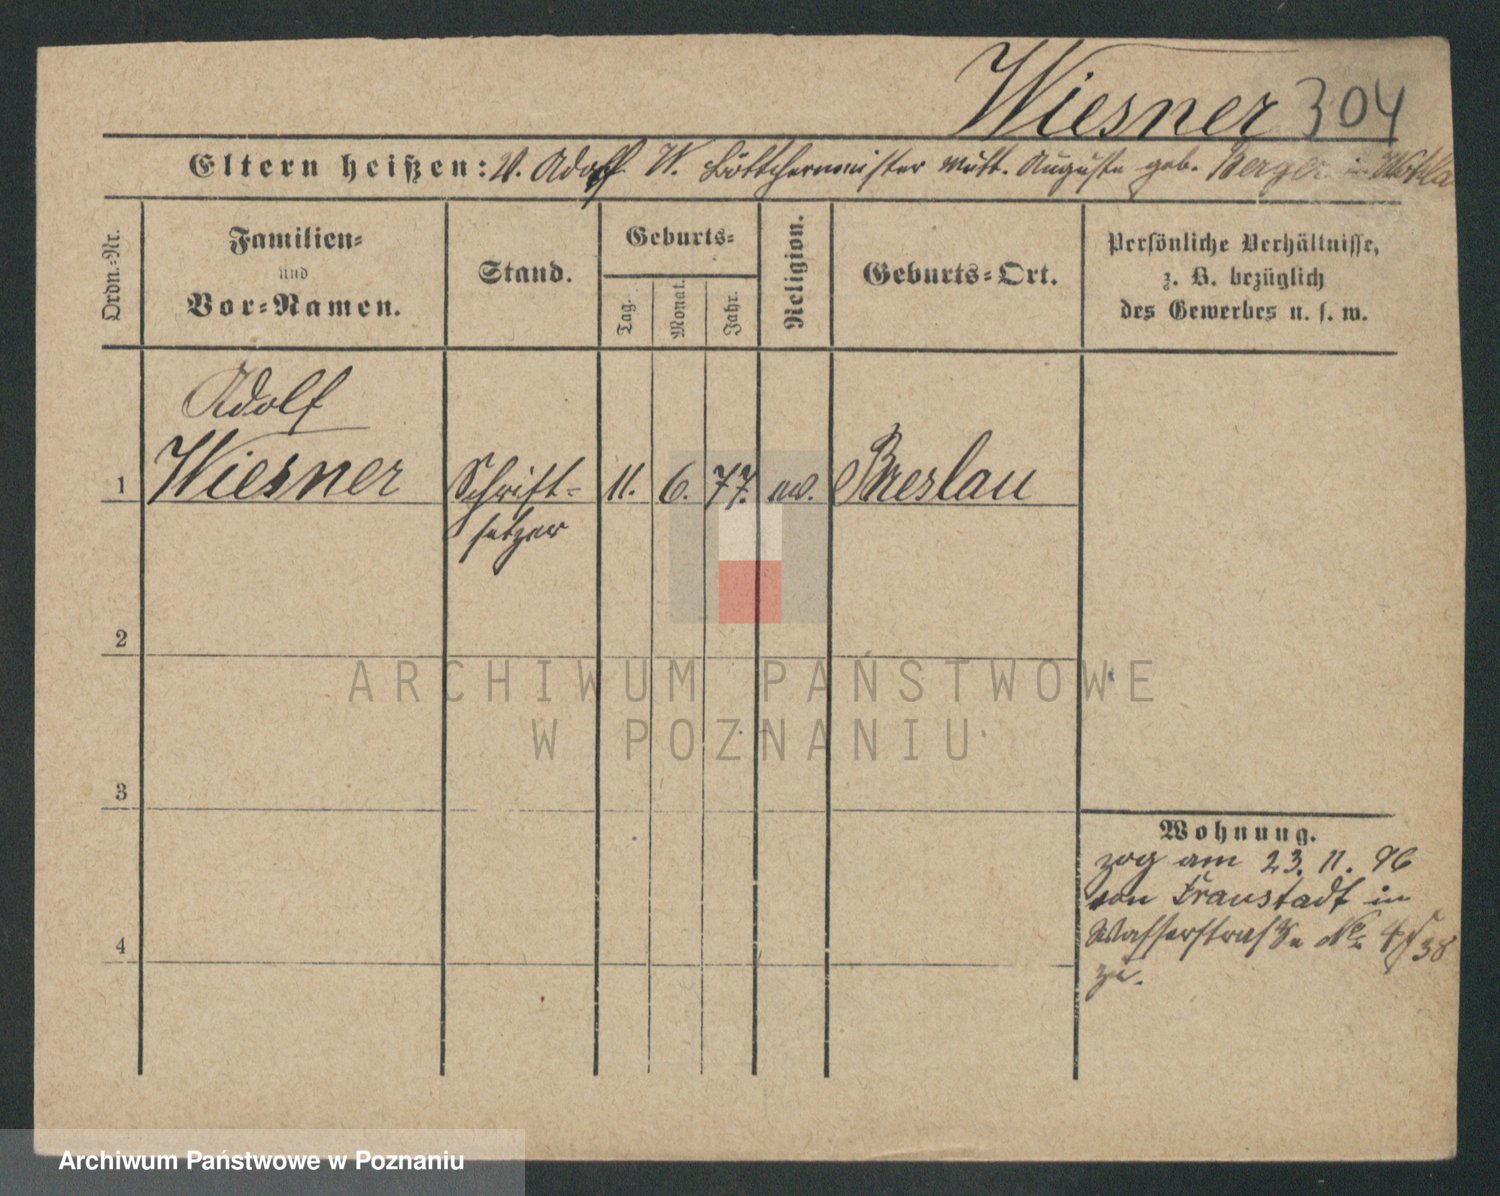 Wiesner 304
Eltern heißen: V. Adolf W. Böttchermeister Mutt. Auguste geb. Berger in
Ordn.=Nr.
Familien=
und
Vor=Namen.
Stand.
Geburts=
Tag.
Monat.
Jahr.
Religion.
Geburts=Ort.
Persönliche Verhältnisse,
z. B. bezüglich
des Gewerbes u. s. w.
Adolf
1 Wiesner Schrift= 11. 6. 77. ev. Breslau
setzer
2
3
4
Wohnung.
zog am 23. 11. 96
von Fraustadt in
Wasserstraße No 38
zu.
ARCHIWUM PAŃSTWOWE
W POZNANIU
Archiwum Państwowe w Poznaniu